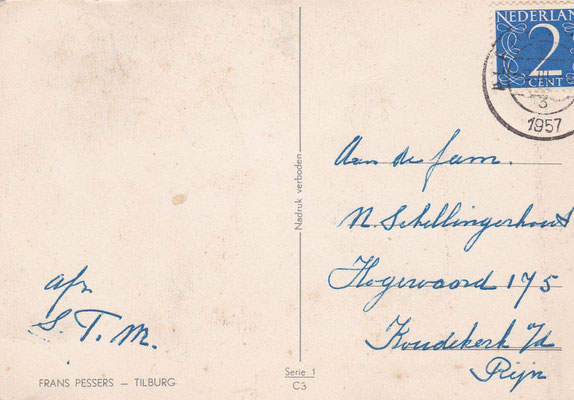 NEDERLAND
2
CENT
3
1957
Nadruk verboden
Aan de fam.
N. Schellingerhout
Hogewaard 175
Koudekerk a/d
Rijn
afz
S. T. M.
FRANS PESSERS — TILBURG
Serie 1
C3